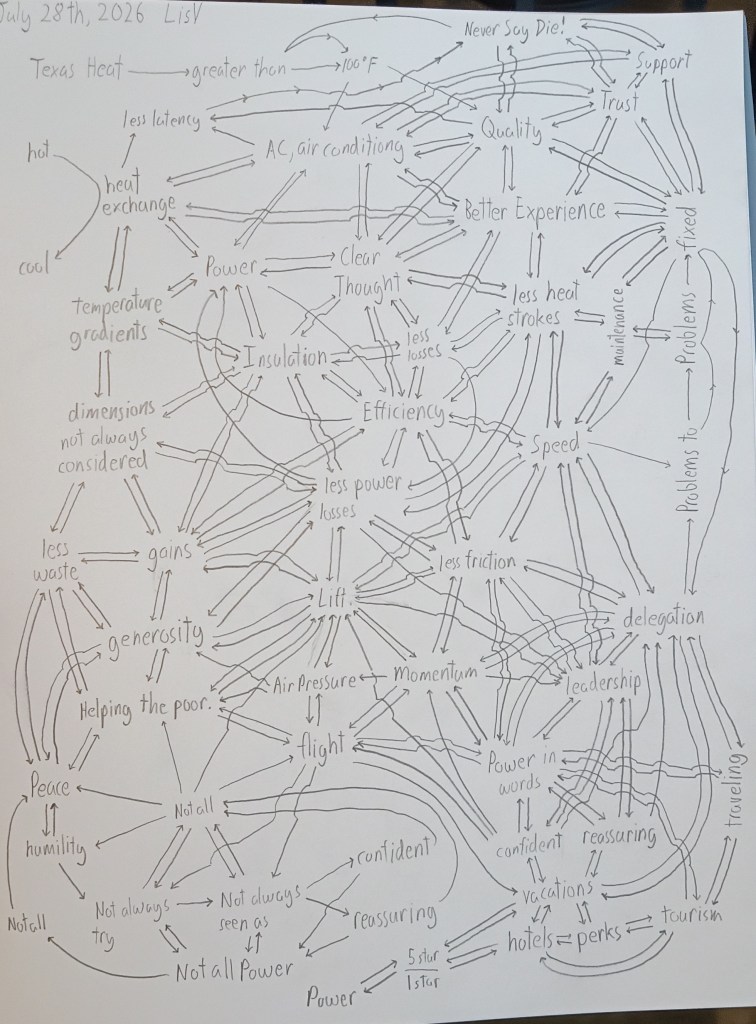 July 28th, 2026 LisV
Never Say Die!
Texas Heat greater than 100°F
Support
Trust
less latency
Quality
AC, air conditiong
hot
heat
exchange
Better Experience
fixed
cool
Power
Clear
Thought
temperature
gradients
less heat
strokes
maintenance
Problems
Insulation
less
losses
dimensions
not always
considered
Efficiency
Speed
Problems to
less power
losses
less
waste
gains
less friction
Lift.
delegation
generosity
Air Pressure
Momentum
leadership
Helping the poor.
flight
Power in
words
traveling
Peace
Not all
humility
confident
reassuring
confident
vacations
Not all
Not always
try
Not always
seen as
reassuring
tourism
hotels = perks
Not all Power
5 star
1 star
Power